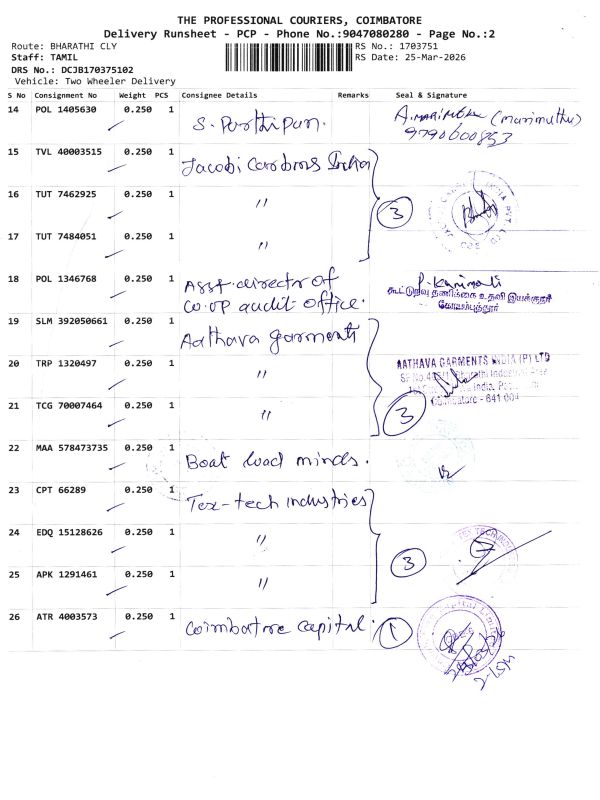 THE PROFESSIONAL COURIERS, COIMBATORE
Delivery Runsheet - PCP - Phone No.:9047080280 - Page No.:2
Route: BHARATHI CLY RS No.: 1703751
Staff: TAMIL RS Date: 25-Mar-2026
DRS No.: DCJB170375102
Vehicle: Two Wheeler Delivery
S No Consignment No Weight PCS Consignee Details Remarks Seal & Signature
14 POL 1405630 0.250 1 S. Parthipan. (marimuthu)
15 TVL 40003515 0.250 1 Jacobi Carbons India
16 TUT 7462925 0.250 1 〃 3
17 TUT 7484051 0.250 1 〃
18 POL 1346768 0.250 1 Asst. director of
Co.op audit office.
கூட்டுறவு தணிக்கை உதவி இயக்குநர்
கோயம்புத்தூர்
19 SLM 392050661 0.250 1 Aathava garments
20 TRP 1320497 0.250 1 〃 AATHAVA GARMENTS INDIA (P) LTD
21 TCG 70007464 0.250 1 〃 3
Coimbatore - 641 004
22 MAA 578473735 0.250 1 Boat load minds.
23 CPT 66289 0.250 1 Tex-tech industries
24 EDQ 15128626 0.250 1 〃 3
25 APK 1291461 0.250 1 〃
26 ATR 4003573 0.250 1 Coimbatore capital. 1